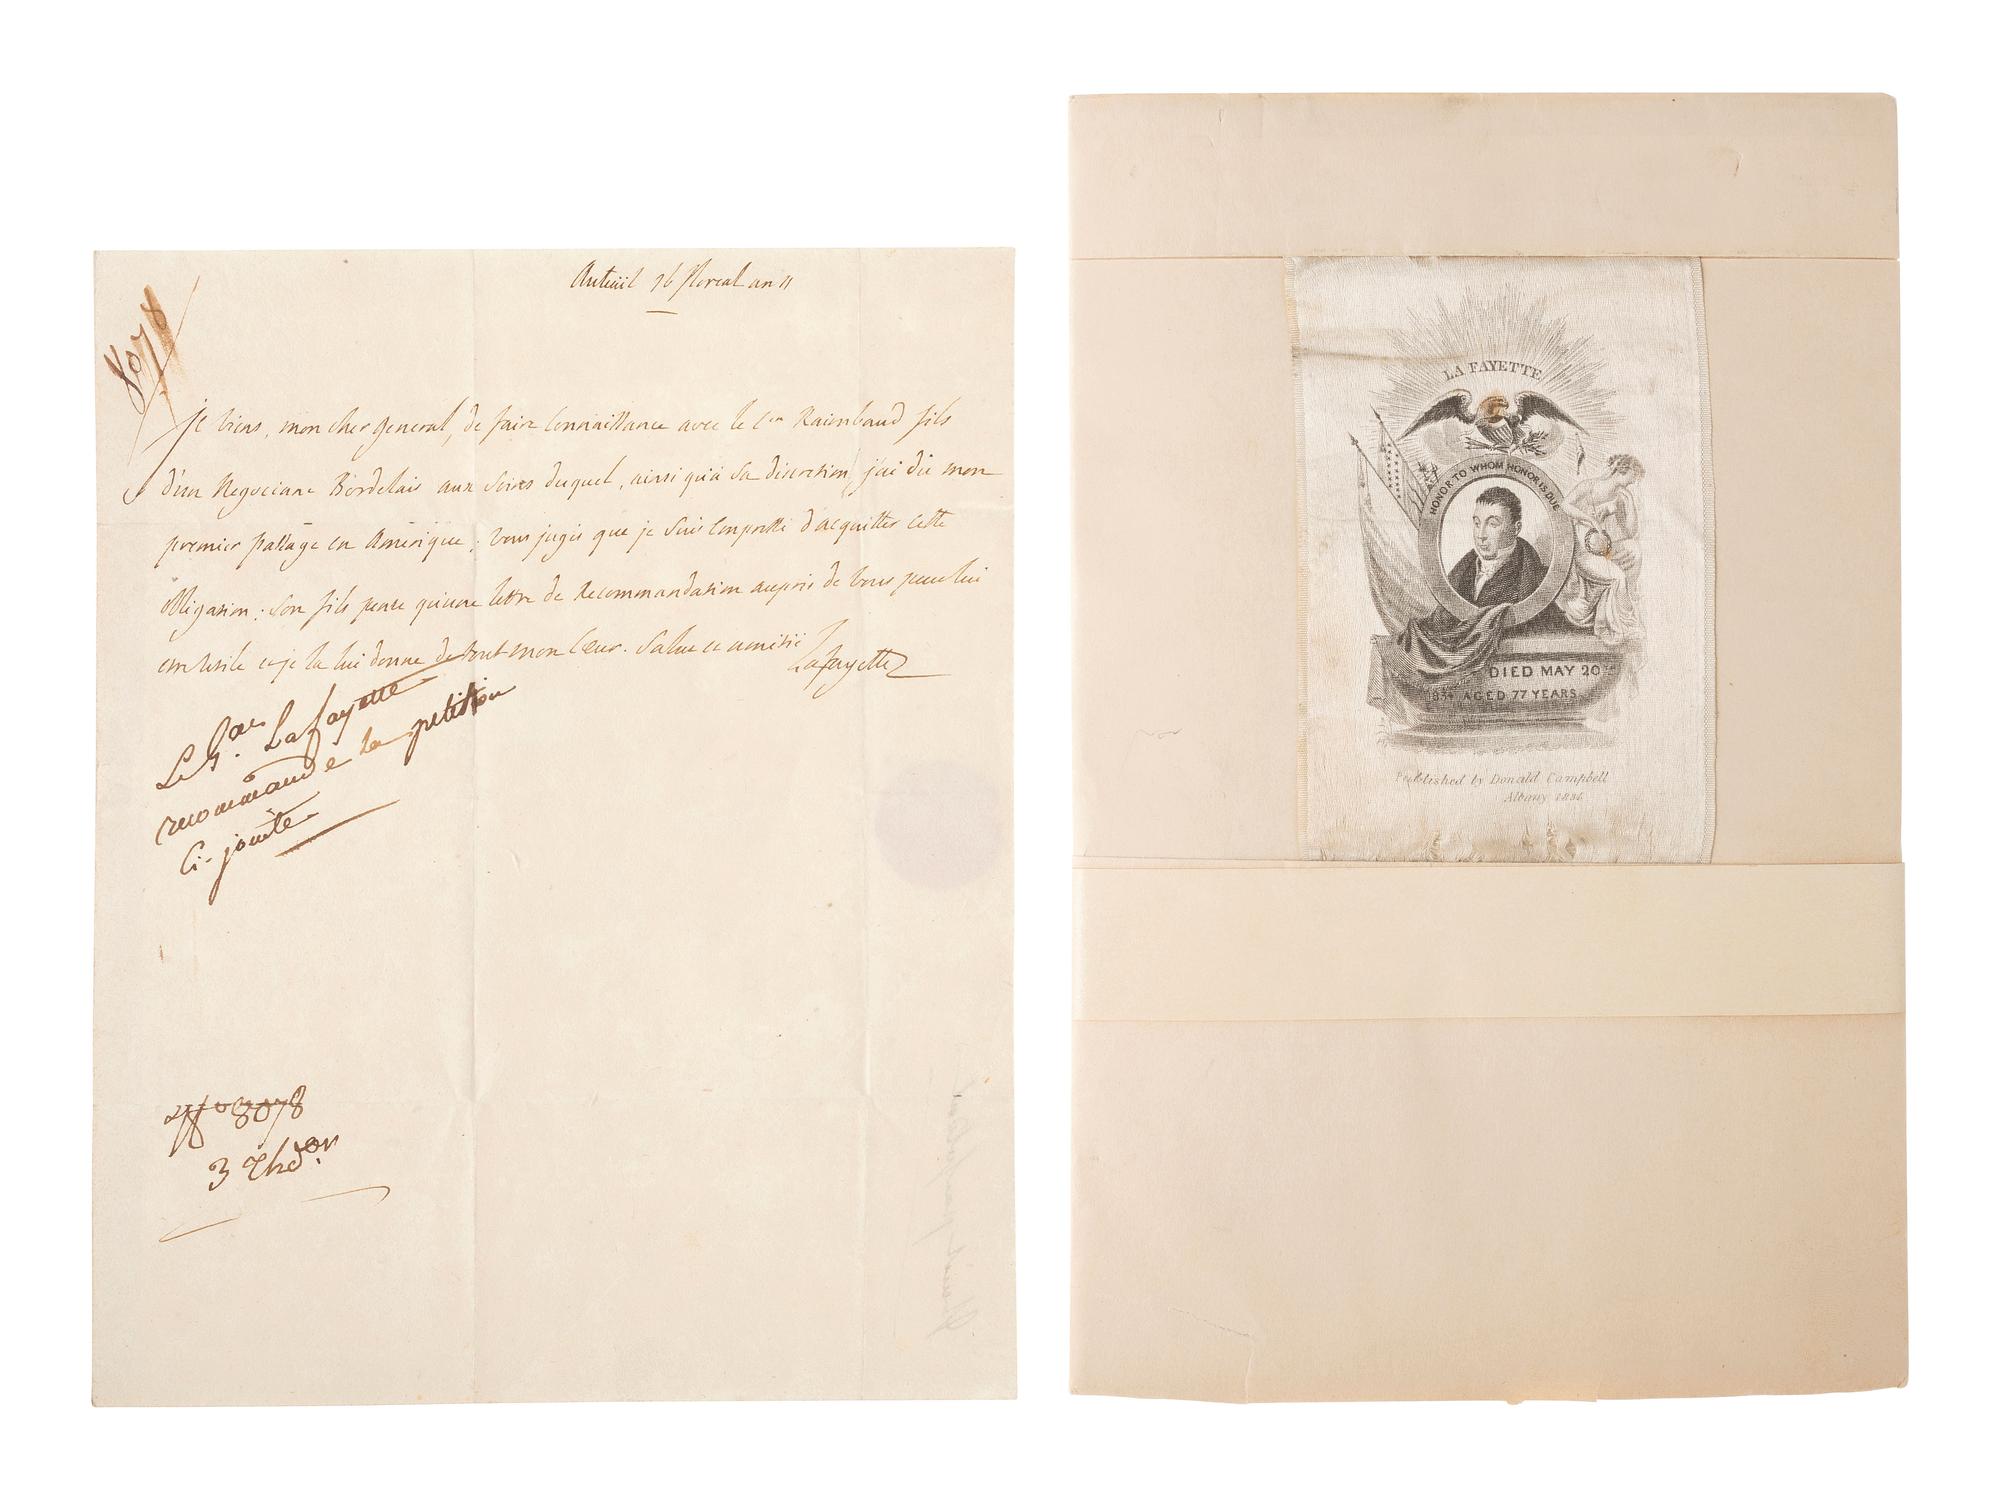 Auteuil 16 floreal an 11
8078
je viens, mon cher general, de faire connaissance avec le Cen Raimbaud fils
d'un Negociant Bordelais aux soins duquel, ainsi qu'a sa discretion, j'ai du mon
premier passage en Amérique; vous jugés que je suis empressé d'acquitter cette
obligation: son fils pense qu'une lettre de recommandation auprès de vous peut lui
etre utile et je la lui donne de tout mon cœur. Salut et amitié
Lafayette
Le Gal Lafayette
recommande la petition
Ci-jointe
No 8078
3 Thdor
LA FAYETTE
HONOR TO WHOM HONOR IS DUE
DIED MAY 20TH
1834 AGED 77 YEARS
Published by Donald Campbell
Albany 1834